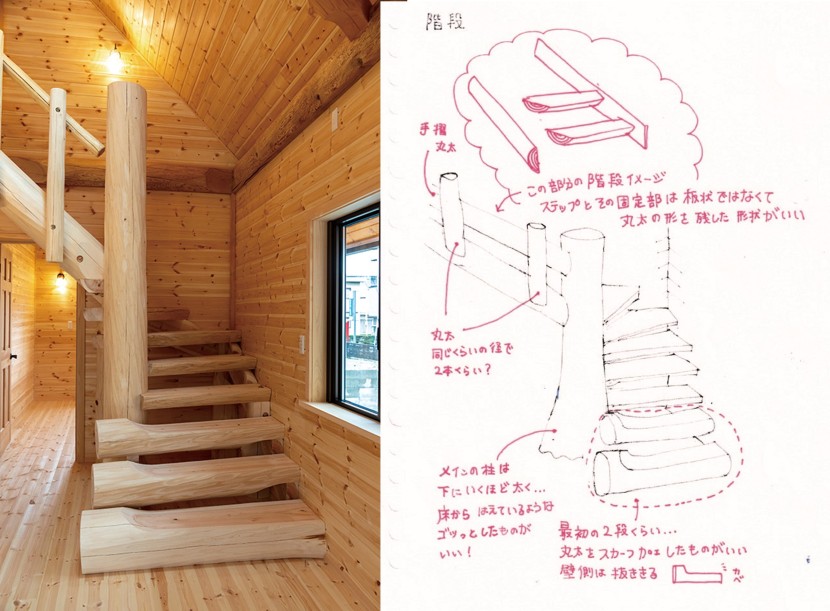 階段
手摺
丸太
この部分の階段イメージ
ステップとその固定部は板状ではなくて
丸太の形を残した形状がいい
丸太
同じくらいの径で
2本くらい?
メインの柱は
下にいくほど太く…
床からはえているような
ゴツッとしたものが
いい!
最初の2段くらい…
丸太をスカーフ加工したものがいい
壁側は抜ききる
カベ